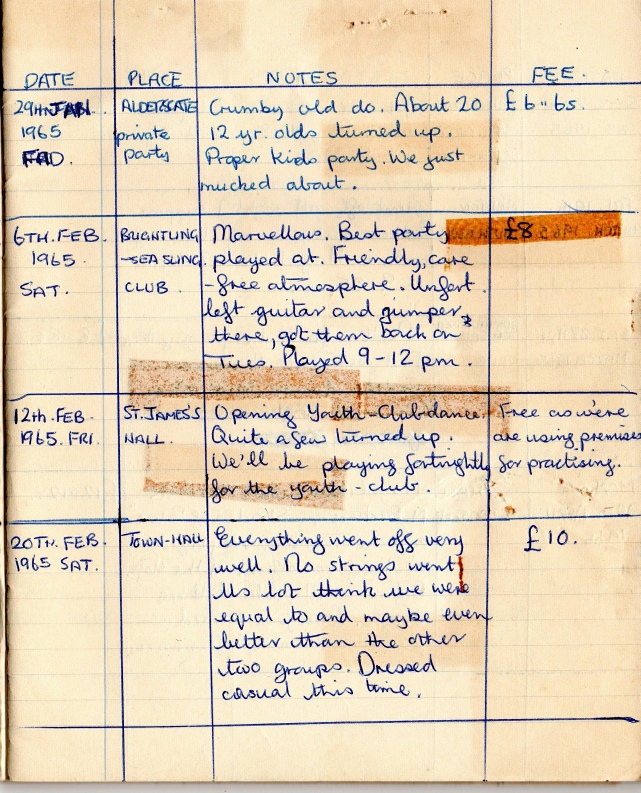 DATE PLACE NOTES FEE.
29th JAN. ALDERSGATE Crumby old do. About 20 £6"6s.
1965 private 12 yr. olds turned up.
party Proper kids party. We just
mucked about.
6TH. FEB. Marvellous. Best party £8
1965. -SEA SLING played at. Friendly, care
SAT. CLUB. -free atmosphere. Unfort.
left guitar and jumper
there, got them back on
Tues. Played 9-12 pm.
12th. FEB. ST. JAMES'S Opening Youth-Club-dance. Free as we're
1965. FRI. HALL. Quite a few turned up. are using premises
We'll be playing fortnightly for practising.
for the youth-club.
20TH. FEB. TOWN-HALL Everything went off very £10.
1965 SAT. well. No strings went!
Us lot think we were
equal to and maybe even
better than the other
two groups. Dressed
casual this time.